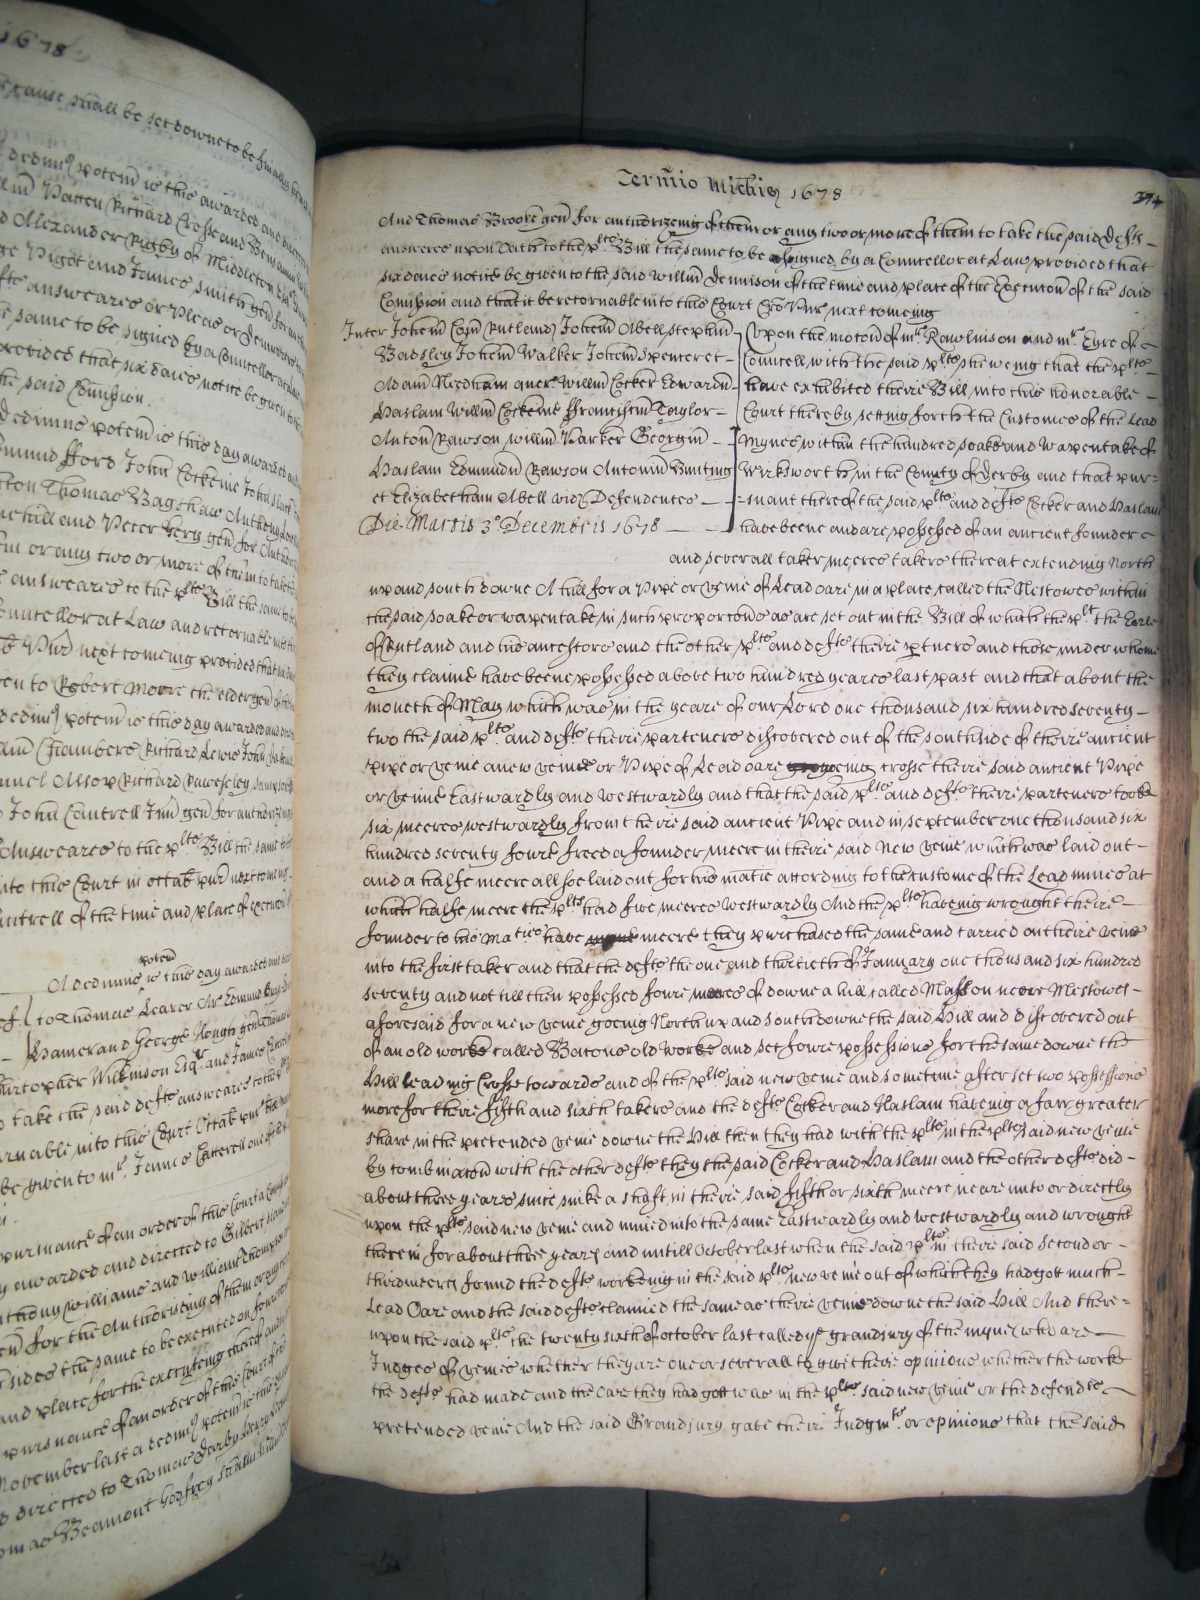 1678
cause shall be set downe to be finally
dedimus potem is this awarded and
Willm Patten Richard Crosse and Benjamin
Alexander Rigby of Middleton Esqr
Pigot and James Smith gen for
answeares or Pleas or demurrers
same to be signed by a Councellor at Law
provided that six daies notice be given to
the said Comission.
dedimus potem is this day awarded
fford John Cockeine John
Thomas Bagshaw Anthony
hill and Peter gen for Authorizeing
or any two or more of them to take
answeares to the plts Bill the same to
Councellor at Law and retornable into
Pur next comeing provided that
to Robert Moore the elder gen of the
dedim potem is this day awarded and
Chambers Richard Lewis John
Alsop Richard Raweseley
John Cantrell Junr gen for authorizeing
Answeares to the plts Bill the same to be
into this Court in octab pur next comeing
Cantrell of the time and place of execution
potem
A dedimus is this day awarded and
to Thomas Learer Edmund
Hamer and George Hough gen
Christopher Wilkinson Esqr and James
to take the said defts answeares to the plts
retornable into this Court Octab pur
be given to mr. James Catterell one of
pursuance of an order of this Court a
awarded and directed to Gilbert
Anthony Williams and William Thompson
for the Authoriseing of them or any
sides the same to be executed on
and place for the executeing thereof
pursuance of an order of this Court
November last a dedim potem is this
directed to Thomas Darby Henry
Thomas Beamont Godfrey
Termio Michis 1678
374
And Thomas Brooke gen for authorizeing of them or any two or more of them to take the said Defts
answeres upon Oath to the plts Bill the same to be signed by a Councellor at Law provided that
six daies notice be given to the said Willm Dennison of the time and place of the Execucon of the said
Comission and that it be retornable into this Court Cro Pur next comeing
Inter Johem Com Rutland Johem Abell Stephm
Badsley Johem Walker Johem Spencer et
Adam Needham quer Willm Cocker Edwardm
Haslam Willm Cockeine ffranciscm Taylor
Anton Rawson Willm Parker Georgm
Haslam Edmundm Rawson Antonm Bunting
et Elizabetham Abell vid Defendentes
Die Martis 3o Decembris 1678
Upon the motion of mr. Rawlinson and mr. Eyre of
Councell with the said plts sheweing that the plts
have exhibited theire Bill into this honorable
Court thereby setting forth the Customes of the Lead
Mynes within the hundred soake and wapentake of
Wirksworth in the County of Derby and that pur=
=suant thereof the said plts and defts Cocker and Haslam
have beene and are possessed of an ancient founder
and severall taker meeres takers thereat extending North
up and south downe A hill for a Pipe or veine of Lead oare in a place called the Nestowes within
the said soake or wapentake in such proporcons as are set out in the Bill of which the plt the Earle
of Rutland and his ancestors and the other plts and defts theire ptners and those under whome
they claime have beene possessed above two hundred yeares last past and that about the
moneth of May which was in the yeare of our Lord one thousand six hundred seventy
two the said plts and defts theire parteners discovered out of the southside of theire ancient
pipe or veine a new veine or Pipe of Lead oare goeing crosse theire said ancient Pipe
or veine Eastwardly and Westwardly and that the said plts and defts theire parteners tooke
six meeres westwardly from theire said ancient Pipe and in september one thousand six
hundred seventy foure freed a founder meere in theire said New veine which was laid out
and a halfe meere allsoe laid out for his matie according to the custome of the Lead mines at
which halfe meere the plts had five meeres Westwardly And the plts haveing wrought theire
founder to his maties have meere they purchased the same and carried on theire veine
into the first taker and that the defts the one and thirtieth of January one thousand six hundred
seventy and not till then possessed foure meeres of downe a hill called Masson neere Nestowes
aforesaid for a new veine goeing North up and South downe the said Hill and discovered out
of an old worke called Bacons old worke and set foure possessions for the same downe the
Hill leading Crosse towards and of the plts said new veine and sometime after set two possessions
more for theire fifth and sixth takers and the defts Cocker and Haslam haveing a farr greater
share in the pretended veine downe the Hill then they had with the plts in the plts said new veine
by combinacon with the other defts they the said Cocker and Haslam and the other defts did
about three yeares since sinke a shaft in theire said fifth or sixth meere neare unto or directly
upon the plts said new veine and mined into the same Eastwardly and westwardly and wrought
therein for about three yeares and untill October last when the said plts in theire said second or
third meeres found the defts workeing in the said plts new veine out of which they had gott much
Lead Oare and the said defts claimed the same as theire veine downe the said Hill And there=
upon the said plts the twenty sixth of october last called ye grandjury of the mynes who are
Judges of veines whether they are one or severall to give theire opinions whether the worke
the defts had made and the Oare they had gott was in the plts said new veine or the defendts
pretended veine And the said Grandjury gave their Judgmts or opinions that the said